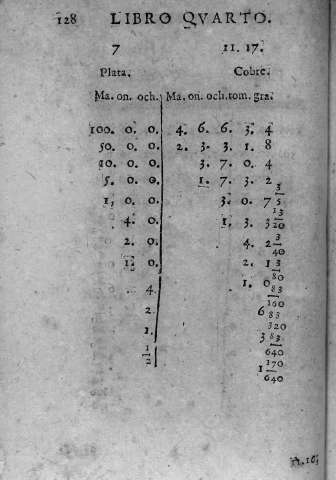 128 LIBRO QVARTO.
7 11. 17.
Plata. Cobre.
Ma. on. och. Ma. on. och. tom. gra.
100. 0. 0. 4. 6. 6. 3. 4
50. 0. 0. 2. 3. 3. 1. 8
10. 0. 0. 3. 7. 0. 4
5. 0. 0. 1. 7. 3. 2 3
1, 0. 0. 3. 0. 7 5
13
4. 0. 1. 3. 3 20
3
2. 0. 4. 2 40
1. 0. 2. 1 3
80
4. 1. 0 83
160
2. 6 83
320
1. 3 83
1 640
2 170
1 640